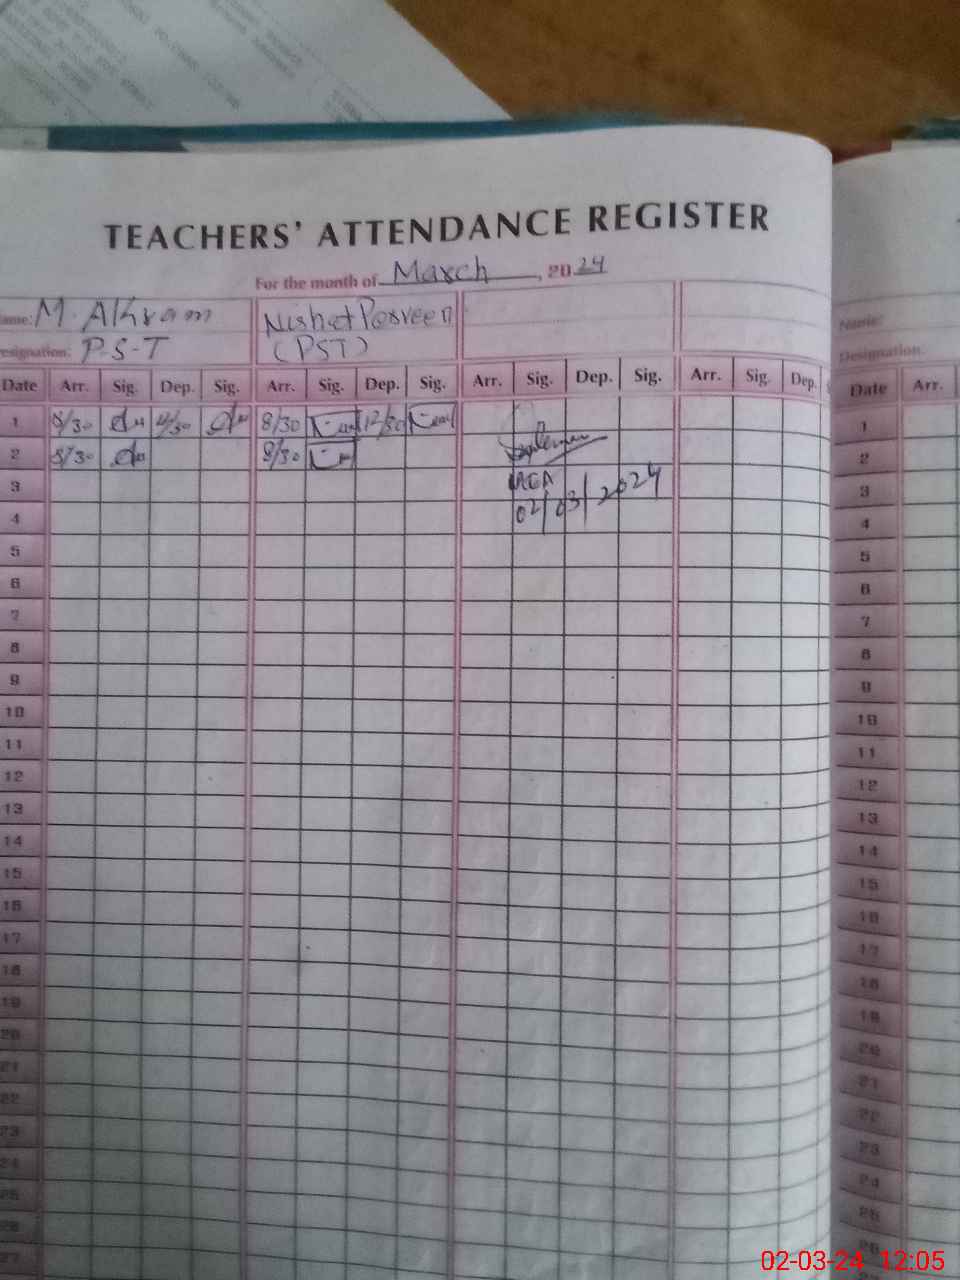 TEACHERS' ATTENDANCE REGISTER
For the month of March, 2024
Name: M. AKram
Nishat Parveen
Designation: P-S-T
(PST)
Date Arr. Sig. Dep. Sig. Arr. Sig. Dep. Sig. Arr. Sig. Dep. Sig. Arr. Sig. Dep.
1 8/30 12/30 8/30 12/30
2 8/30 8/30
3
4 02/03/2024
5
6
7
8
9
10
11
12
13
14
15
16
17
18
19
20
21
22
23
24
25
26
27
Name:
Designation.
Date Arr.
1
2
3
4
5
6
7
8
9
10
11
12
13
14
15
16
17
18
19
20
21
22
23
24
25
26
02-03-24 12:05